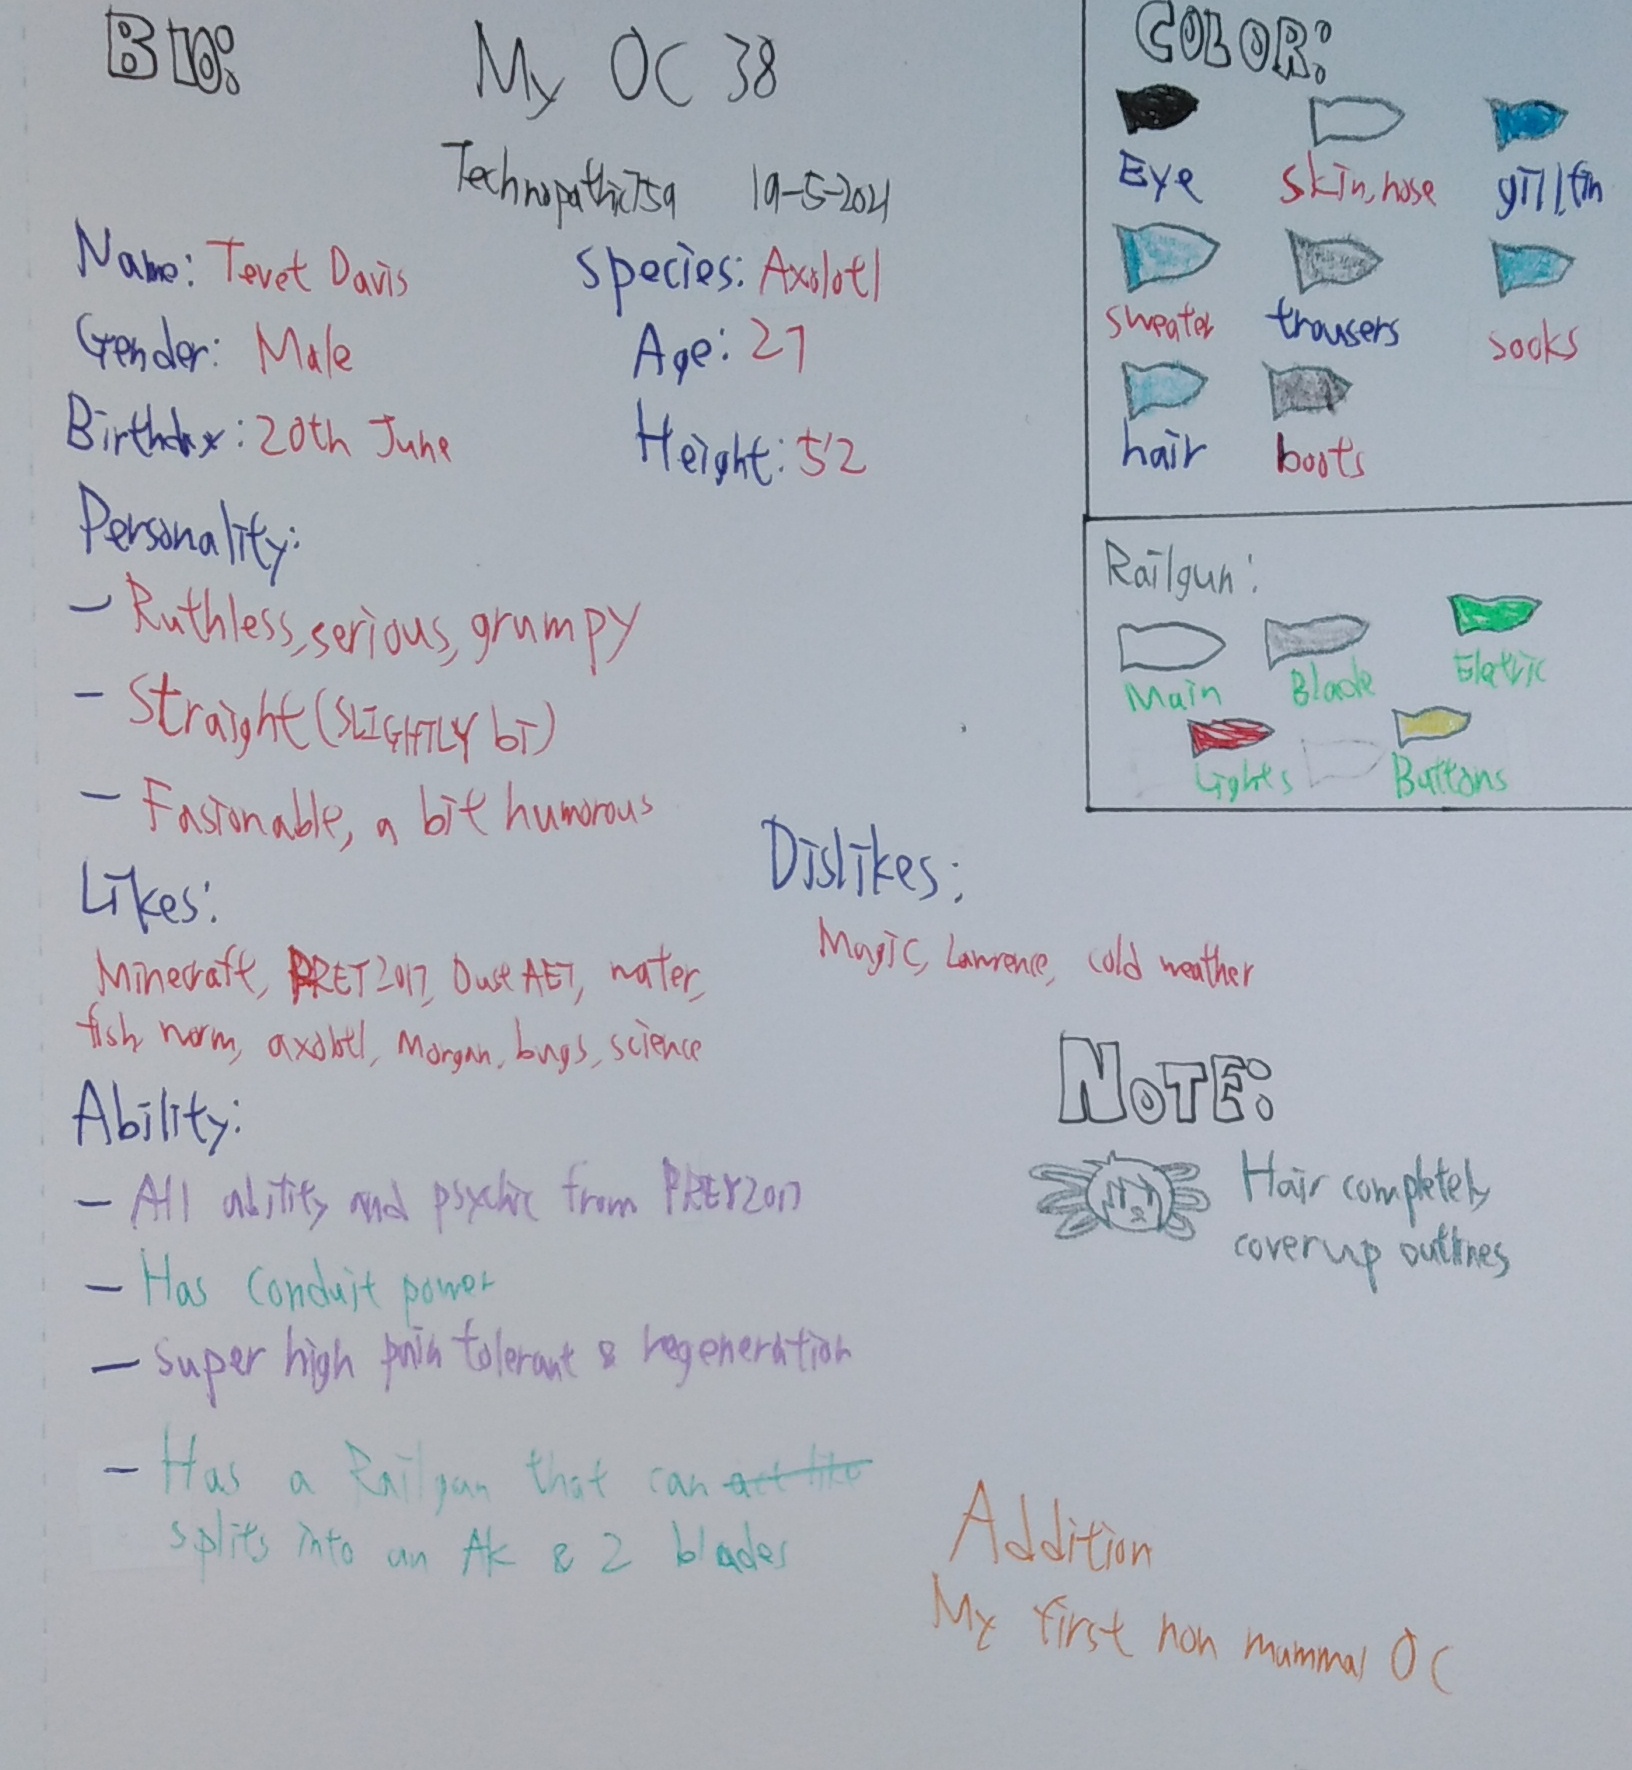 BIO:
My OC 38
Technopathic759 19-5-2021
Name: Tevet Davis
Species: Axolotl
Gender: Male
Age: 27
Birthday: 20th June
Height: 5'2
Personality:
- Ruthless, serious, grumpy
- Straight (SLIGHTLY bi)
- Fasionable, a bit humorous
Likes:
Minecraft, PRET2017, Dust AET, water,
fish, worm, axolotl, Morgan, bugs, science
Dislikes:
Magic, Lawrence, cold weather
Ability:
- All ability and psychic from PRET2017
- Has Conduit power
- Super high pain tolerant & regeneration
- Has a Railgun that can act like
splits into an AK & 2 blades
COLOR:
Eye
skin, nose
gill, fin
sweater
trousers
socks
hair
boots
Railgun:
Main
Blade
Eletric
Lights
Buttons
NOTE:
Hair completely
coverup outlines
Addition
My first non mammal OC